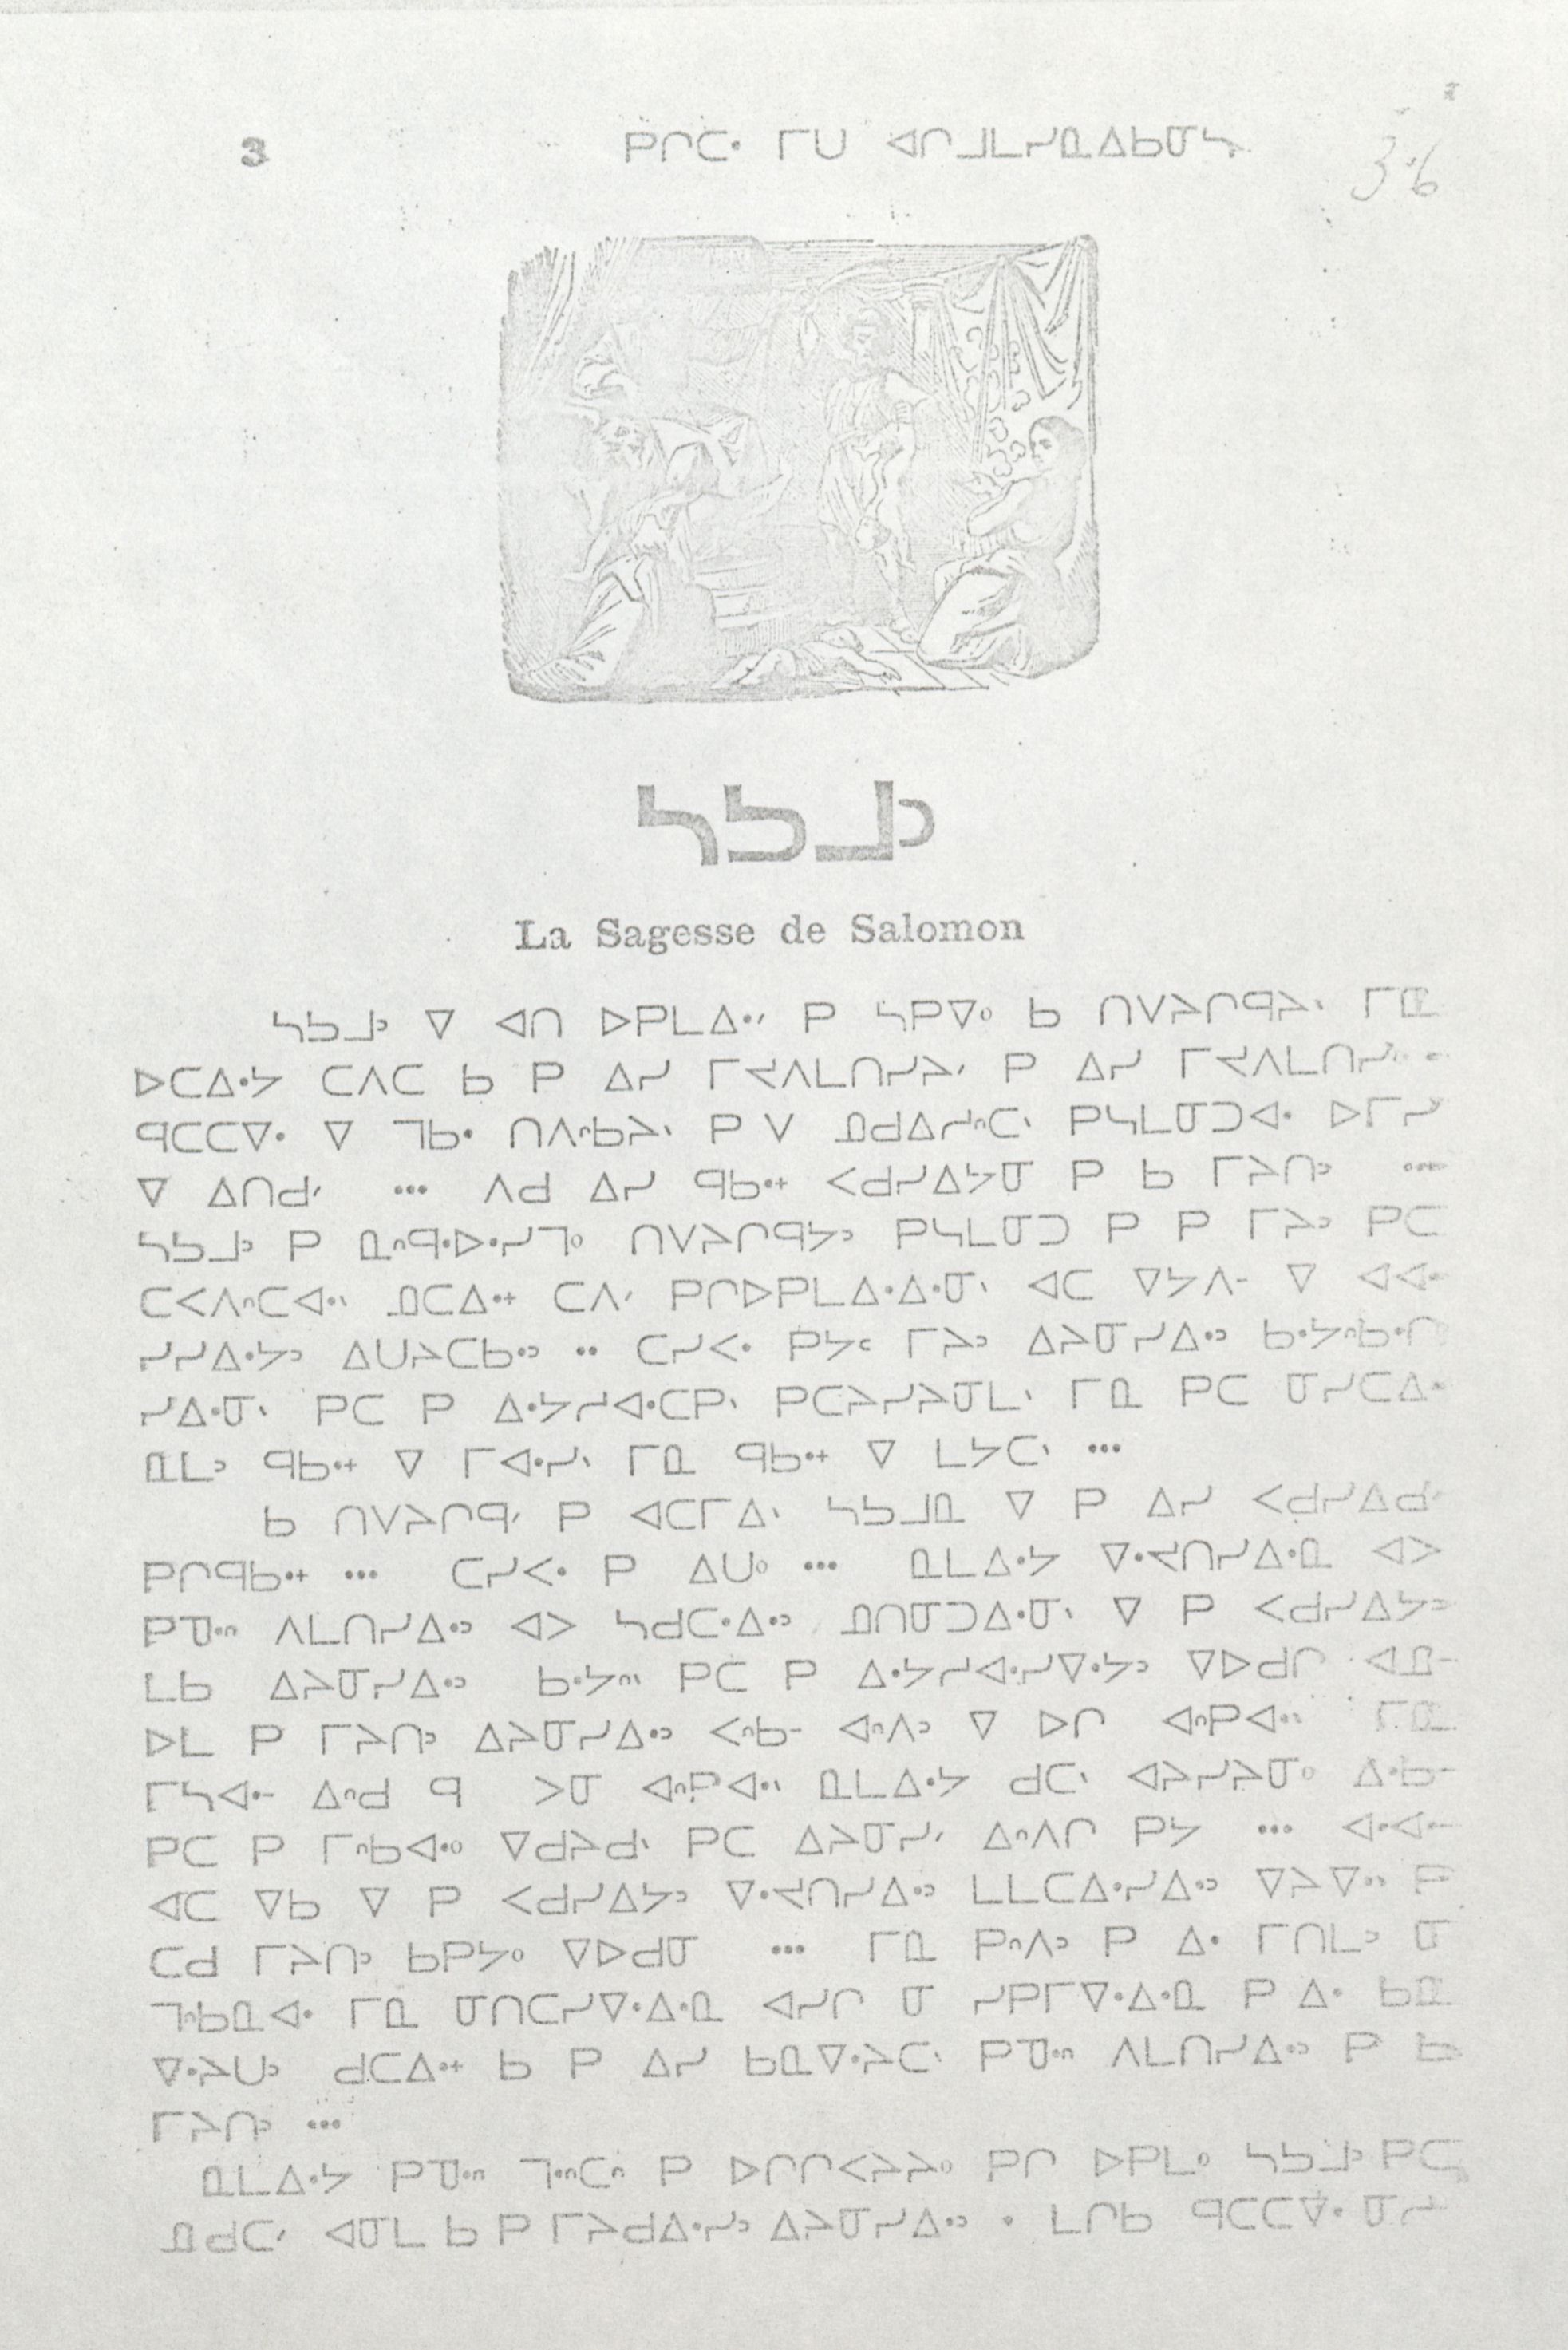 3 ᑭᒋᑕᐧ ᒥᑌ ᐊᒋᒧᒪᓯᓇᐃᑲᓂᓴ
3·6
ᓴᓚᒧᐣ
La Sagesse de Salomon
ᓴᓚᒧᐣ ᐁ ᐊᑎ ᐅᑭᒪᐃᐧᐟ ᑭ ᓴᑭᐁᐤ ᑲ ᑎᐯᔨᒋᑫᔨᐠ ᒥᓇ
ᐅᑕᐃᐧᔭ ᑕᐱᑕ ᑲ ᑭ ᐃᓯ ᒥᔪᐱᒪᑎᓯᔨᐟ ᑭ ᐃᓯ ᒥᔪᐱᒪᑎᓯ
ᑫᑕᑕᐁᐧ ᐁ ᒣᑲᐧ ᑎᐱᐢᑲᔨᐠ ᑭ ᐯ ᓄᑯᐃᓯᐢᑕᐠ ᑭᓴᒪᓂᑐᐊᐧ ᐅᒥᓯ
ᐁ ᐃᑎᑯᐟ ••• ᐱᑯ ᐃᓯ ᑫᑲᐧᐩ ᐸᑯᓯᐃᔭᓂ ᑭ ᑲ ᒥᔨᑎᐣ
ᓴᓚᒧᐣ ᑭ ᓇᐢᑫᐧᐅᐧᓯᒣᐤ ᑎᐯᔨᒋᑫᔭᐣ ᑭᓴᒪᓂᑐ ᑭ ᑭ ᒥᔨᐣ ᑭᑕ
ᑕᐸᐱᐢᑕᐊᐧᐠ ᓄᑕᐃᐧᐩ ᑕᐱᐟ ᑭᒋᐅᑭᒪᐃᐧᐃᐧᓂᐠ ᐊᑕ ᐁᔭᐱᐨ ᐁ
ᓯᓯᐃᐧᔭᐣ ᐃᑌᔨᑕᑲᐧᐣ •• ᑕᓯᐸᐧ ᑭᔭᑦ ᒥᔨᐣ ᐃᔨᓂᓯᐃᐧᐣ
ᓯᐃᐧᓂᐠ ᑭᑕ ᑭ ᐃᐧᔭᓯᐊᐧᑕᑭᐠ ᑭᑕᔨᓯᔨᓂᒪᐠ ᒥᓇ ᑭᑕ ᓂᓯᑕᐃᐧ
ᓇᒪᐣ ᑫᑲᐧᐩ ᐁ ᒥᐊᐧᓯᐠ ᒥᓇ ᑫᑲᐧᐩ ᐁ ᒪᔭᑕᐠ •••
ᑲ ᑎᐯᔨᒋᑫᐟ ᑭ ᐊᑕᒥᐃᐠ ᓴᓚᒧᓇ ᐁ ᑭ ᐃᓯ ᐸᑯᓯᐃᑯᐟ
ᑭᒋᑫᑲᐧᐩ ••• ᑕᓯᐸᐧ ᑭ ᐃᑌᐤ ••• ᓇᒪᐃᐧᔭ ᐁᐧᔪᑎᓯᐃᐧᓇ ᐊᐳ
ᑭᓀᐧᐢ ᐱᒪᑎᓯᐃᐧᐣ ᐊᐳ ᓴᑯᑕᐧᐃᐧᐣ ᓄᑎᓂᑐᐃᐧᓂᐠ ᐁ ᑭ ᐸᑯᓯᐃᔭᐣ
ᒪᑲ ᐃᔨᓂᓯᐃᐧᐣ ᑲᐧᔭᐢᐠ ᑭᑕ ᑭ ᐃᐧᔭᓯᐊᐧᓯᐁᐧᔭᐣ ᐁᐅᑯᒋ
ᐅᒪ ᑭ ᒥᔨᑎᐣ ᐃᔨᓂᓯᐃᐧᐣ ᐸᐢᑲᐨ ᐊᐢᐱᐣ ᐁ ᐅᒋ ᐊᐢᑭᐊᐧᐠ
ᒥᓴᐊᐧᐨ ᐃᐢᑯ ᑫ ᐳᓂ ᐊᐢᑭᐊᐧᐠ ᓇᒪᐃᐧᔭ ᑯᑕᐠ ᐊᔨᓯᔨᓂᐤ ᐃᐧᑲᐨ
ᑭᑕ ᑭ ᒥᐢᑲᐊᐧᐤ ᐁᑯᔨᑯᐠ ᑭᑕ ᐃᔨᓂᓯᐟ ᐃᐢᐱᒋ ᑭᔭ •••
ᐊᑕ ᐁᑲ ᐁ ᑭ ᐸᑯᓯᐃᔭᐣ ᐁᐧᔪᑎᓯᐃᐧᐣ ᒪᒪᑕᐃᐧᓯᐃᐧᐣ
ᑕᑯ ᒥᔨᑎᐣ ᑲᑭᔭᐤ ᐁᐅᑯᓂ ••• ᒥᓇ ᑭᐢᐱᐣ ᑭ ᐃᐧ ᒥᑎᒪᐣ ᓂ
ᒣᐢᑲᓇᐊᐧ ᒥᓇ ᓂᑎᑕᓯᐁᐧᐃᐧᓇ ᐊᓯᒋ ᓂ ᓯᑭᒥᐁᐧᐃᐧᓇ ᑭ ᐃᐧ ᑲᓇ
ᐁᐧᔨᑌᐣ ᑯᑕᐃᐧᐩ ᑲ ᑭ ᐃᓯ ᑲᓇᐁᐧᔨᑕᐠ ᑭᓀᐧᐢ ᐱᒪᑎᓯᐃᐧᐣ ᑭ ᑲ
ᒥᔨᑎᐣ •••
ᓇᒪᐃᐧᔭ ᑭᓀᐧᐢ ᒣᐧᐢᑕᐢ ᑭ ᐅᒋᒋᐸᔨᔨᐤ ᑭᒋ ᐅᑭᒪᐤ ᓴᓚᒧᐣ ᑭᑕ
ᓄᑯᑕᐟ ᐊᓂᒪ ᑲ ᑭ ᒥᔨᑯᐃᐧᓯᐣ ᐃᔨᓂᓯᐃᐧᐣ • ᒪᒋᑲ ᑫᑕᑕᐁᐧ ᓂᓯ